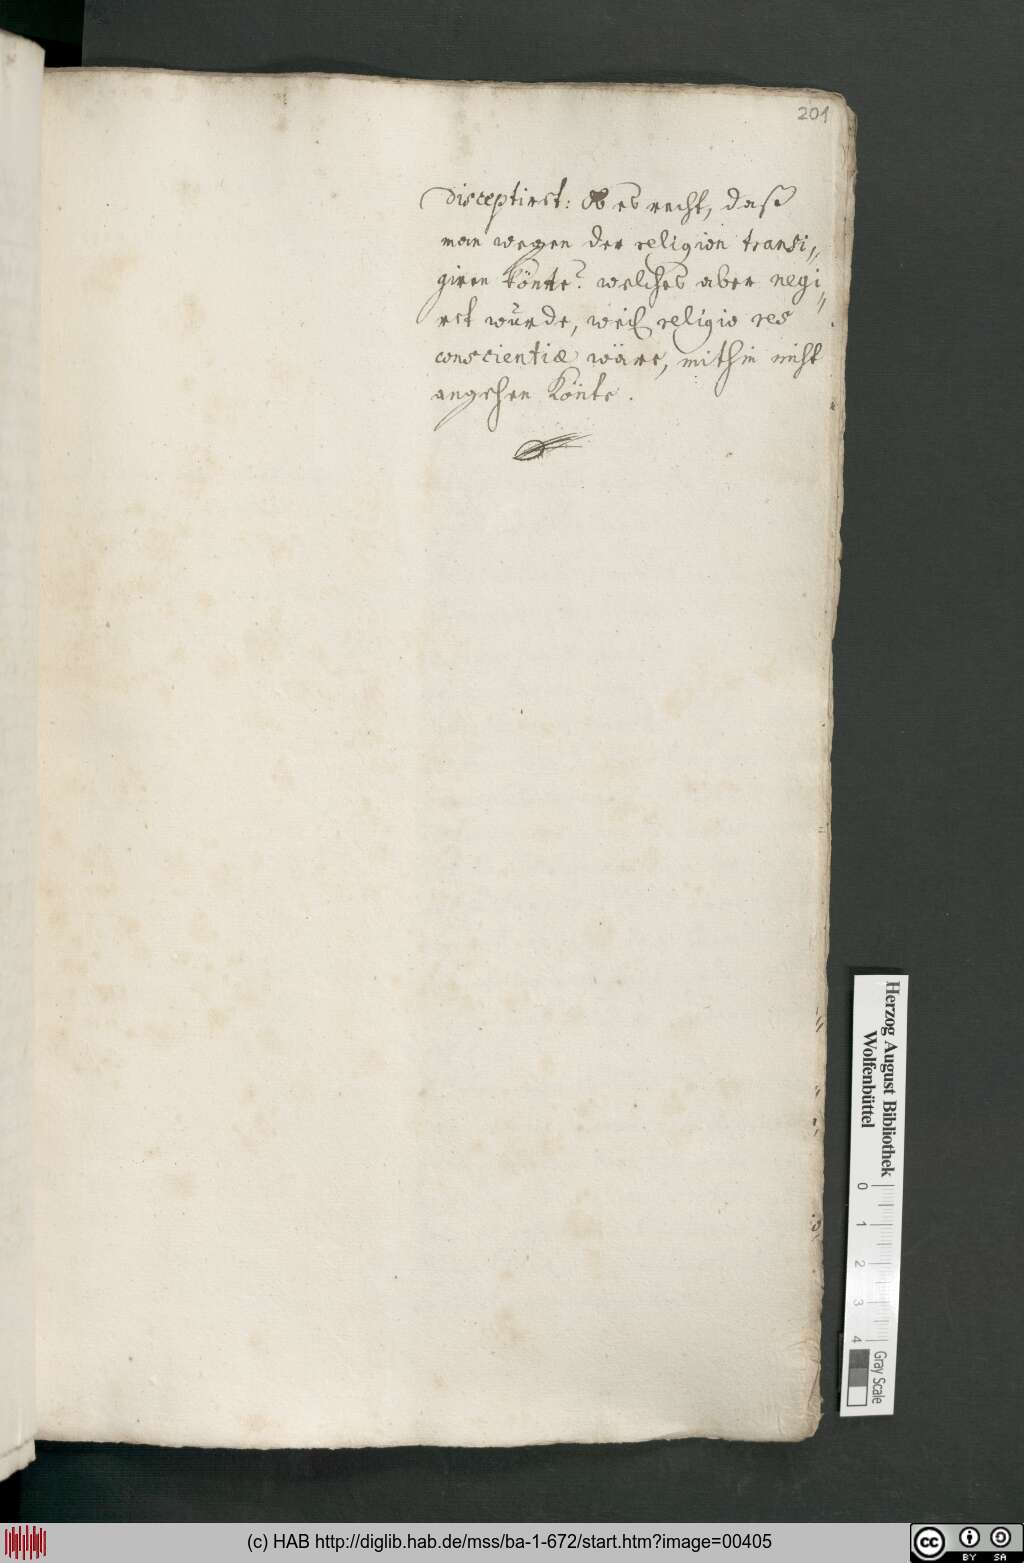 201
disceptiret: Ob es recht, daß
man wegen der religion transi„
giren könte? welches aber negi„
ret wurde, weil religio res
conscientiæ wäre, mithin nicht
angehen könte.
Herzog August Bibliothek
Wolfenbüttel
0 1 2 3 4
Gray Scale
(c) HAB http://diglib.hab.de/mss/ba-1-672/start.htm?image=00405
cc BY SA